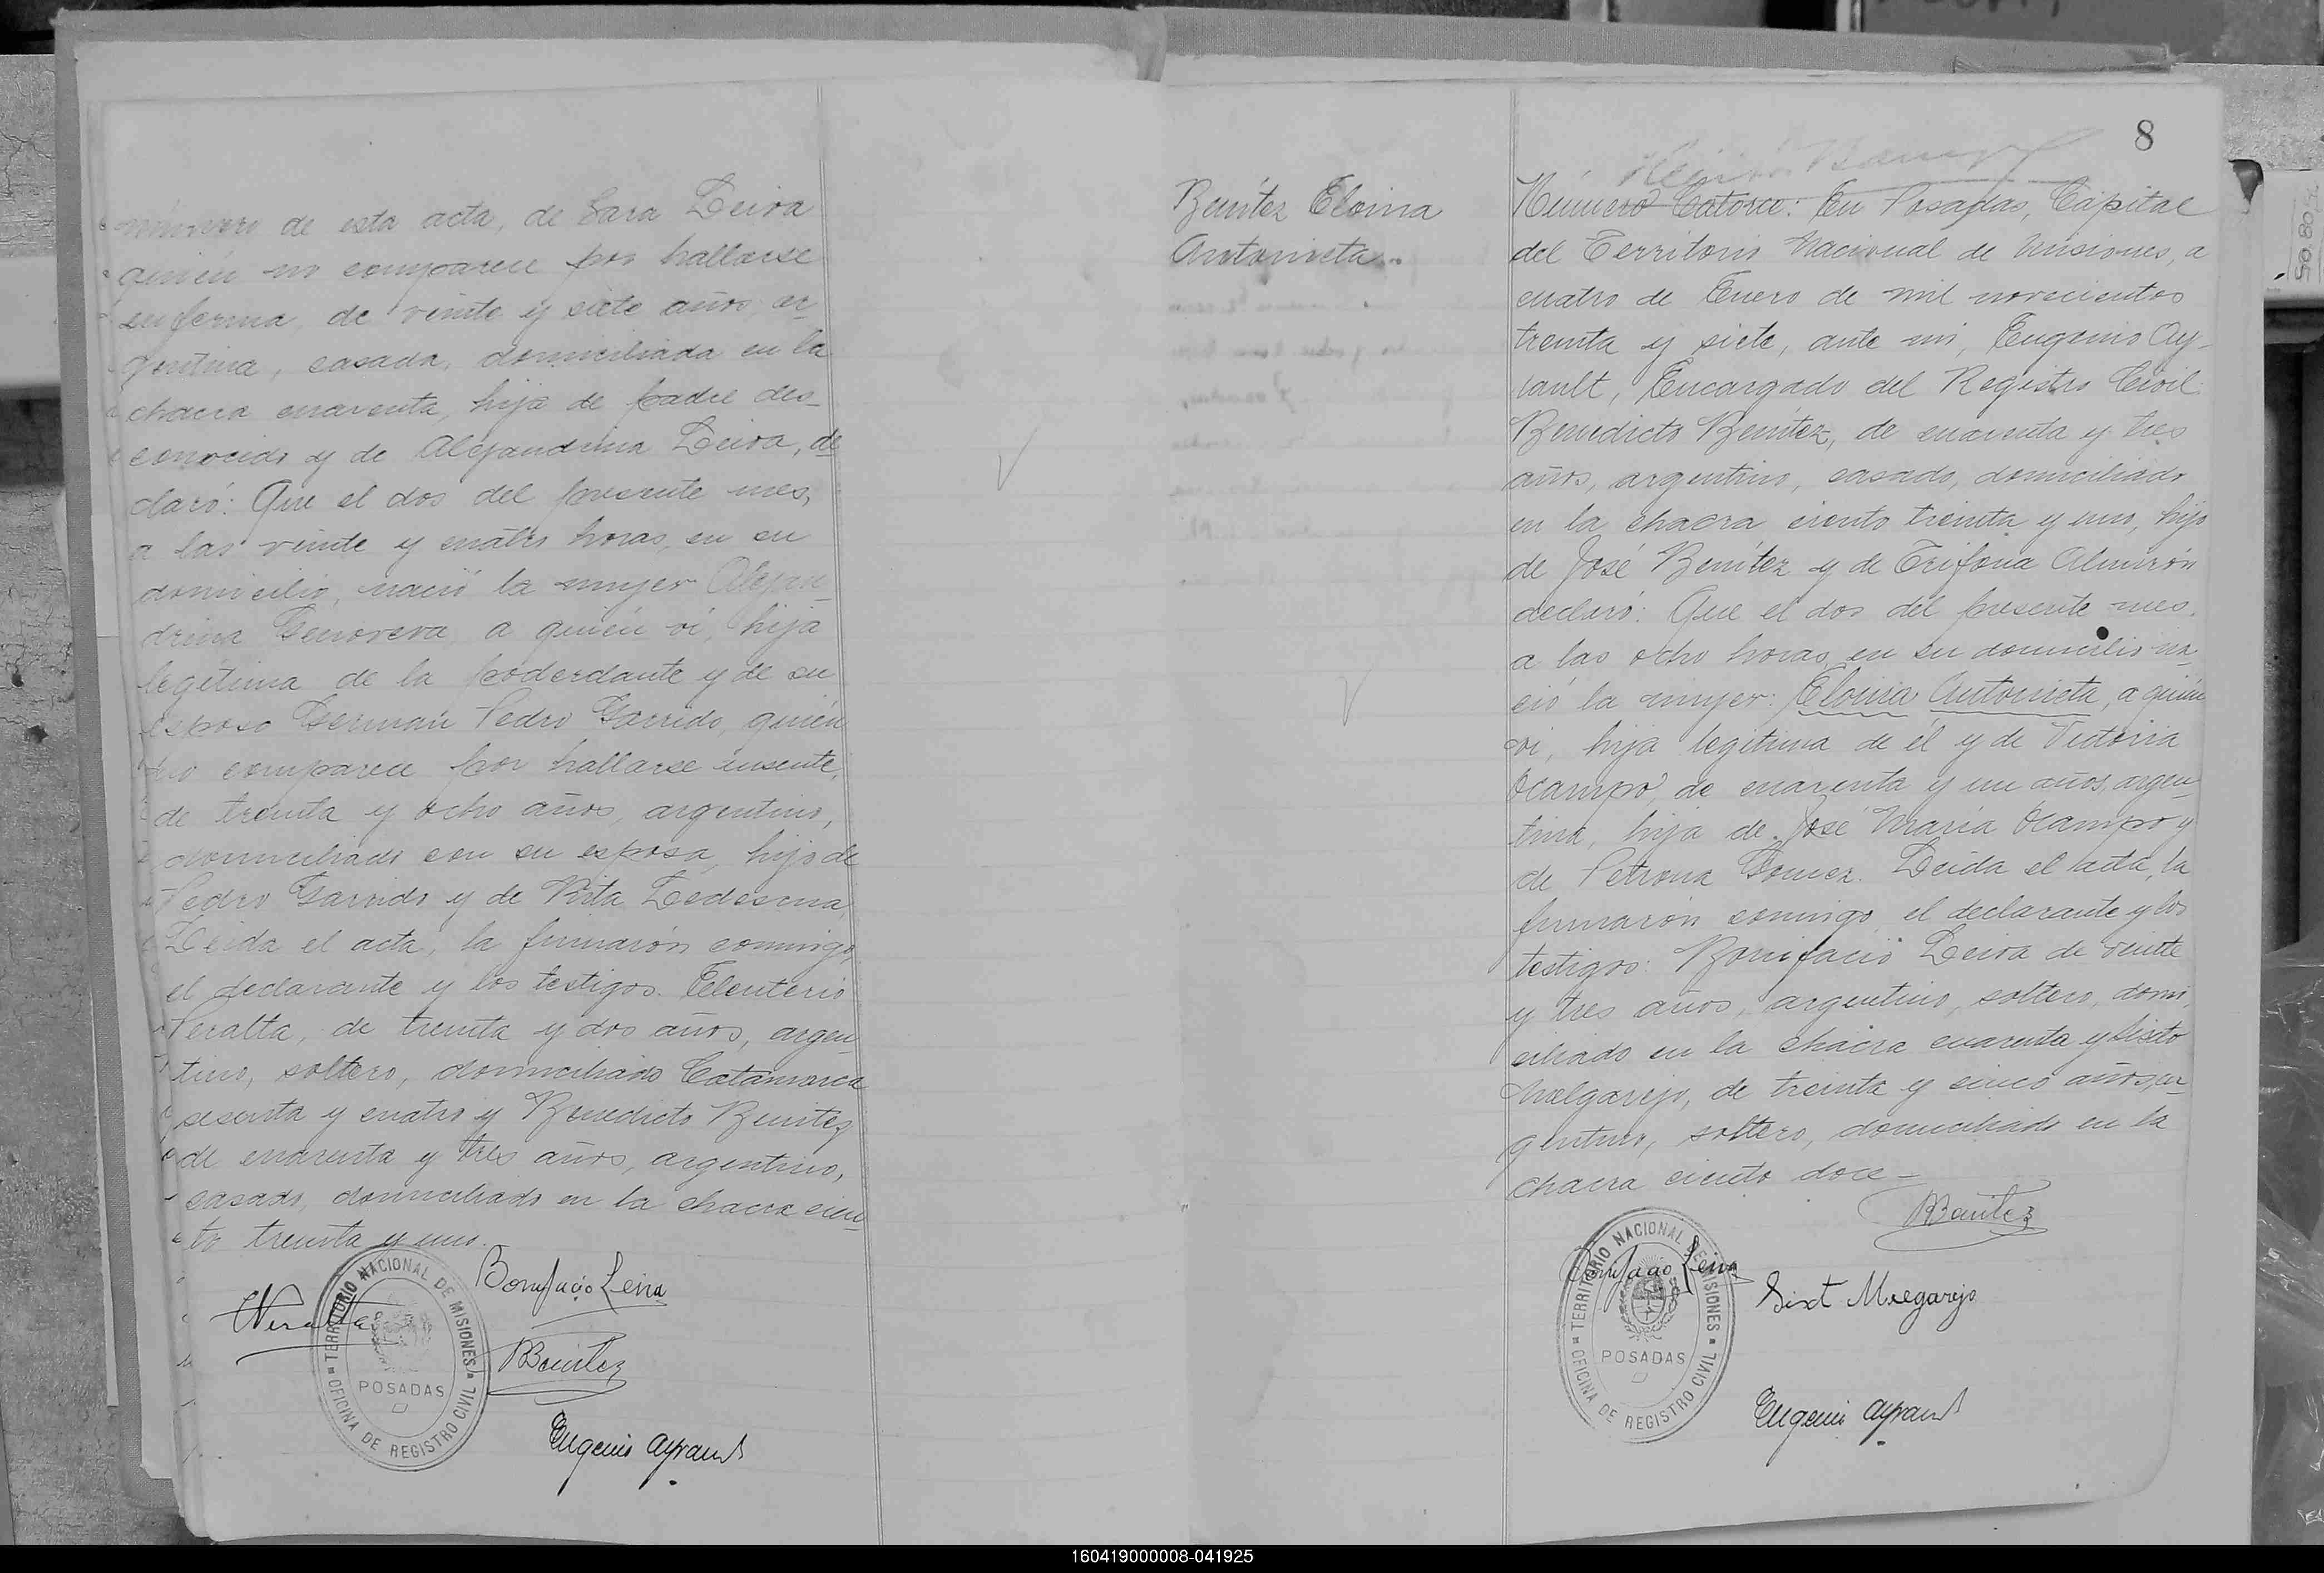 número de esta acta, de Sara Leiva
quién no comparece por hallarse
enferma, de veinte y siete años, ar_
gentina, casada, domiciliada en la
chacra cuarenta, hija de padre des_
conocido y de Alejandrina Leiva, de_
claró: Que el dos del presente mes,
a las veinte y cuatro horas, en su
domicilio, nació la mujer Alejan_
drina Genoveva, a quién vi, hija
legítima de la poderdante y de su
esposo Germán Pedro Garrido, quién
no comparece por hallarse ausente,
de treinta y ocho años, argentino,
domiciliado con su esposa, hijo de
Pedro Garrido y de Rita Ledesma
Leida el acta, la firmarón conmigo
el declarante y los testigos. Eleuterio
Peralta, de treinta y dos años, argen_
tino, soltero, domiciliado Catamarca
sesenta y cuatro y Benedicto Benítez
de cuarenta y tres años, argentino,
casado, domiciliado en la chacra cien_
to treinta y uno.
Bonifacio Leiva
EPeralta
BBenitez
Eugenio Ayrault
TERRITORIO NACIONAL DE MISIONES
POSADAS
OFICINA DE REGISTRO CIVIL
8
Benítez Eloina
Antonieta..
Número Catorce: En Posadas, Capital
del Territorio Nacional de Misiones, a
cuatro de Enero de mil novecientos
treinta y siete, ante mi, Eugenio Ay_
rault, Encargado del Registro Civil:
Benedicto Benítez, de cuarenta y tres
años, argentino, casado, domiciliado
en la chacra ciento treinta y uno, hijo
de José Benítez y de Trifona Almirón
declaró: Que el dos del presente mes,
a las ocho horas, en su domicilio na_
ció la mujer: Eloina Antonieta, a quién
vi, hija legítima de él y de Victoria
Ocampo, de cuarenta y un años, argen_
tina, hija de José María Ocampo y
de Petrona Gomez. Leida el acta, la
firmarón conmigo, el declarante y los
testigos: Bonifacio Leiva de veinte
y tres años, argentino, soltero, domi_
ciliado en la chacra cuarenta y Sixto
Melgarejo, de treinta y cinco años, ar_
gentino, soltero, domiciliado en la
chacra ciento doce_
BBenitez
Bonifacio Leiva
Sixt Melgarejo
Eugenio Ayrault
TERRITORIO NACIONAL DE MISIONES
POSADAS
OFICINA DE REGISTRO CIVIL
160419000008-041925